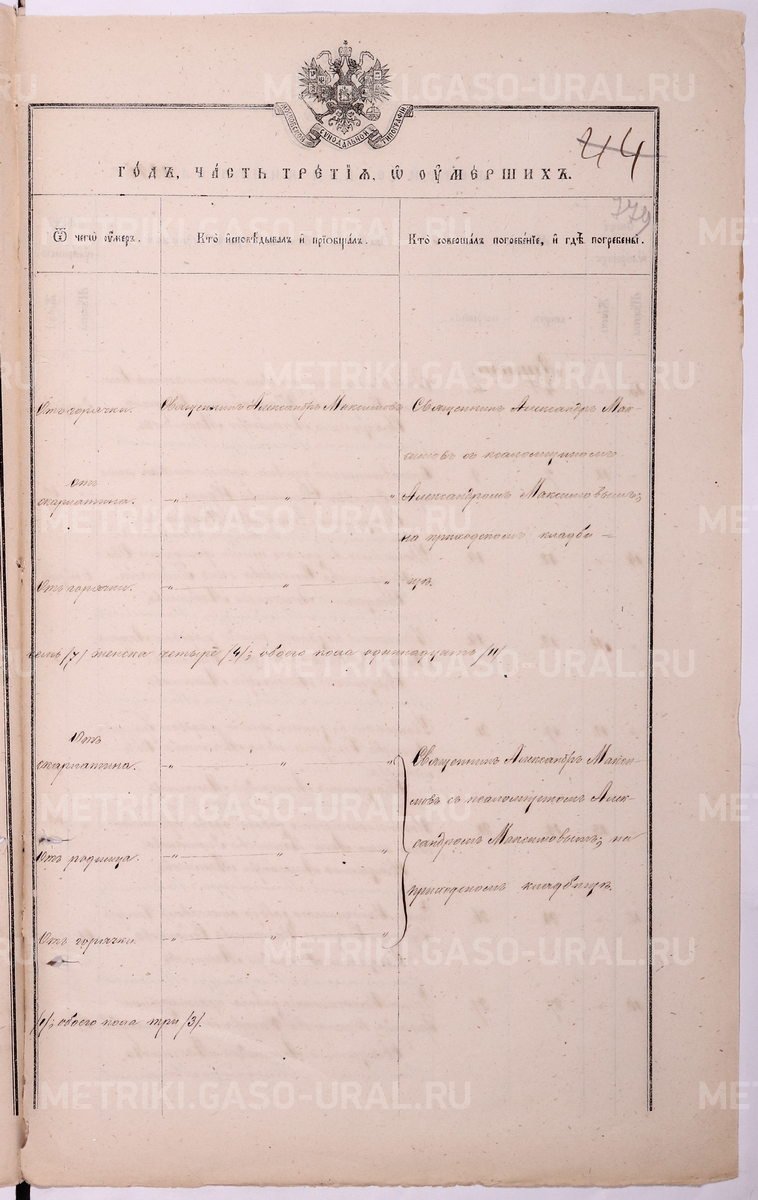 МОСКОВСКОЙ СѴНОДАЛЬНОЙ ТИПОГРАФІИ
44
ГО́ДЪ, ЧА́СТЬ ТРЕ́ТІѦ, Ѡ ОУ҆МЕ́РШИХЪ.
379
Ѿ чегѡ̀ оу҆́меръ.
Кто̀ и҆сповѣ́дывалъ и҆ прїѡбща́лъ.
Кто̀ соверша́лъ погребе́нїе, и҆ гдѣ̀ погребены̀.
Отъ горячки.
Священникъ Александръ Максимовъ
Священникъ Александръ Мак-
симовъ съ псаломщикомъ
Отъ
скарлатина.
-„- „ „
Александромъ Максимовымъ;
на приходскомъ кладби-
Отъ горячки.
-„- „ „
щѣ.
семь /7/ женска четыре /4/; обоего пола одиннадцать /11/
Отъ
скарлатина.
-„- „ „
Священникъ Александръ Макси-
мовъ съ псаломщикомъ Алек-
Отъ родимца.
-„- „ „
сандромъ Максимовымъ; на
приходскомъ кладбищѣ.
Отъ горячки.
-„- „ „
/1/; обоего пола три /3/.
METRIKI.GASO-URAL.RU